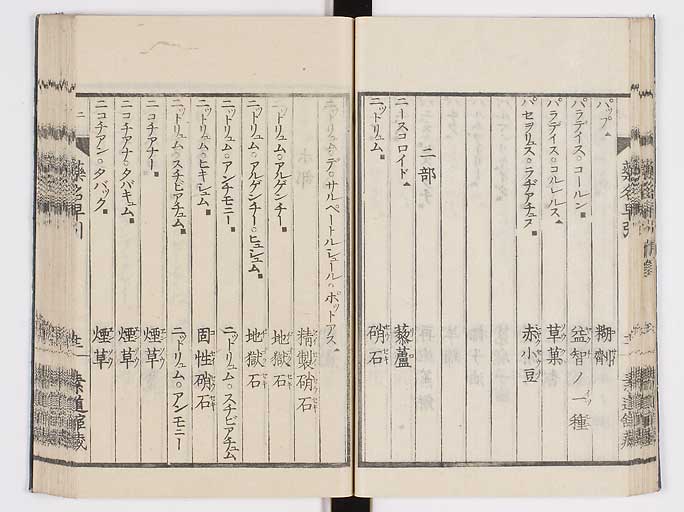 パップ▲ 糊劑
パラデイス。コールン■ 益智ノ一種
パラデイス。コルレルス▲ 草菓
パセヲリュス。ラヂアチュス■ 赤小豆
ニ部
ニースコロイド▲ 藜蘆
ニットリュム■ 硝石
藥名早引
ニットリュム。デ。サルペートルシュール。ポットアス▲
精製硝石
ニットリュム。アルゲンチー■ 地獄石
ニットリュム。アルゲンチー。ヒュシュム■ 地獄石
ニットリュム。アンチモニー■ ニットリュム。スチビアチュム
ニットリュム。ヒキシュム■ 固性硝石
ニットリュム。スチビアチュム■ ニットリュム。アンモニー
ニコチアナー■ 煙草
ニコチアナ。タバキュム■ 煙草
ニコチアン。タバック■ 煙草
藥名早引